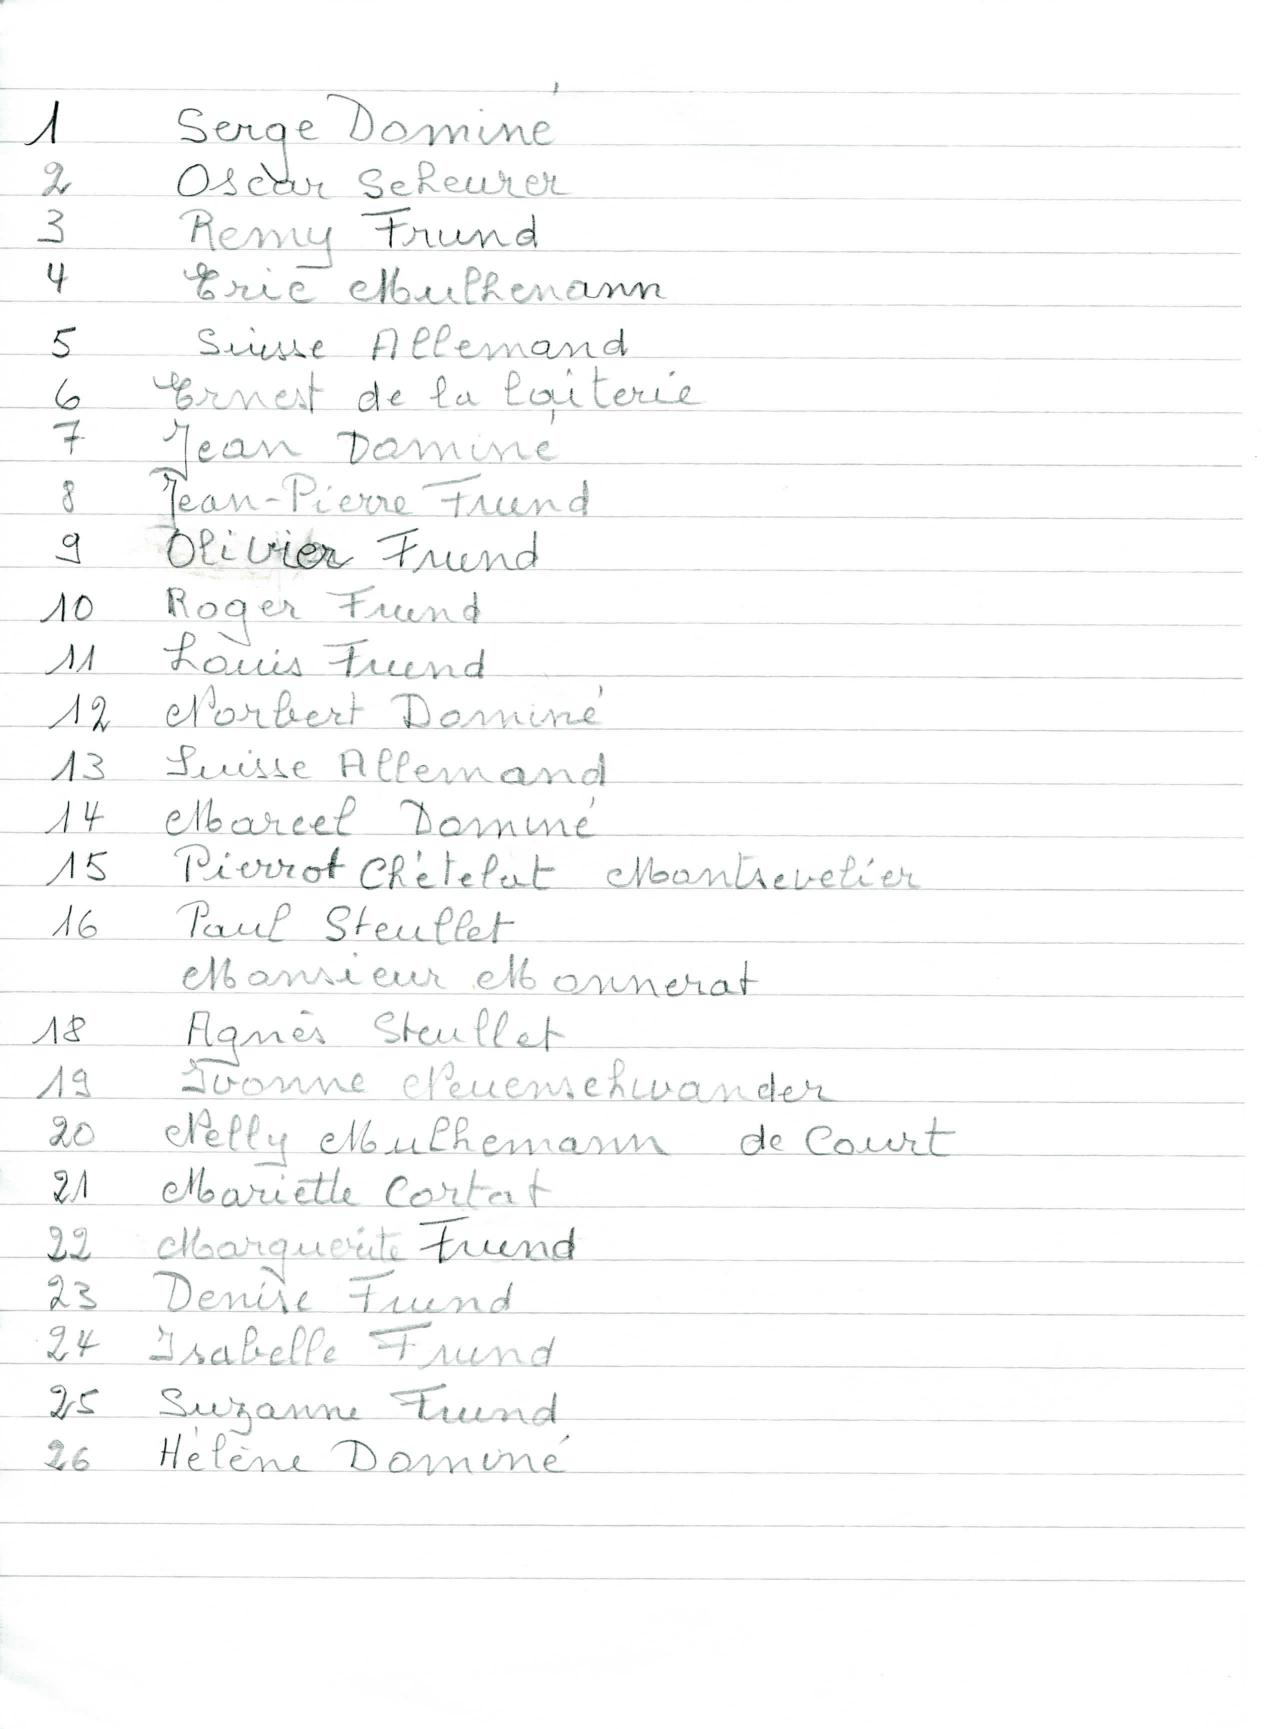 1 Serge Dominé
2 Oscar Scheurer
3 Remy Frund
4 Eric Mulhemann
5 Suisse Allemand
6 Ernest de la laiterie
7 Jean Dominé
8 Jean-Pierre Frund
9 Olivier Frund
10 Roger Frund
11 Louis Frund
12 Norbert Dominé
13 Suisse Allemand
14 Marcel Dominé
15 Pierrot Chételat Montsevelier
16 Paul Steullet
Monsieur Monnerat
18 Agnès Steullet
19 Yvonne Neuenschwander
20 Nelly Mulhemann de Court
21 Mariette Cortat
22 Marguerite Frund
23 Denise Frund
24 Isabelle Frund
25 Suzanne Frund
26 Hélène Dominé